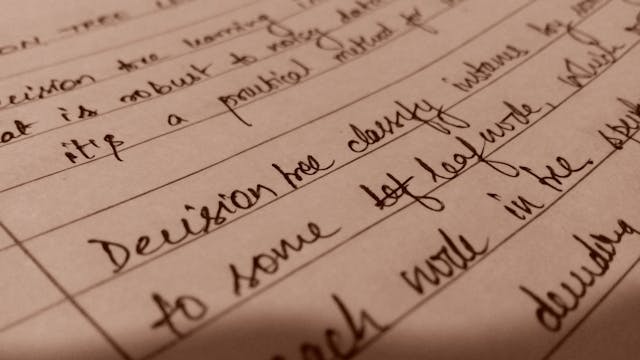 ON TREE LE
ecision tree learning in
at is robust to noisy data
it's a practical method for
Decision tree classify instance by
to some leaf node, which
each node in tree